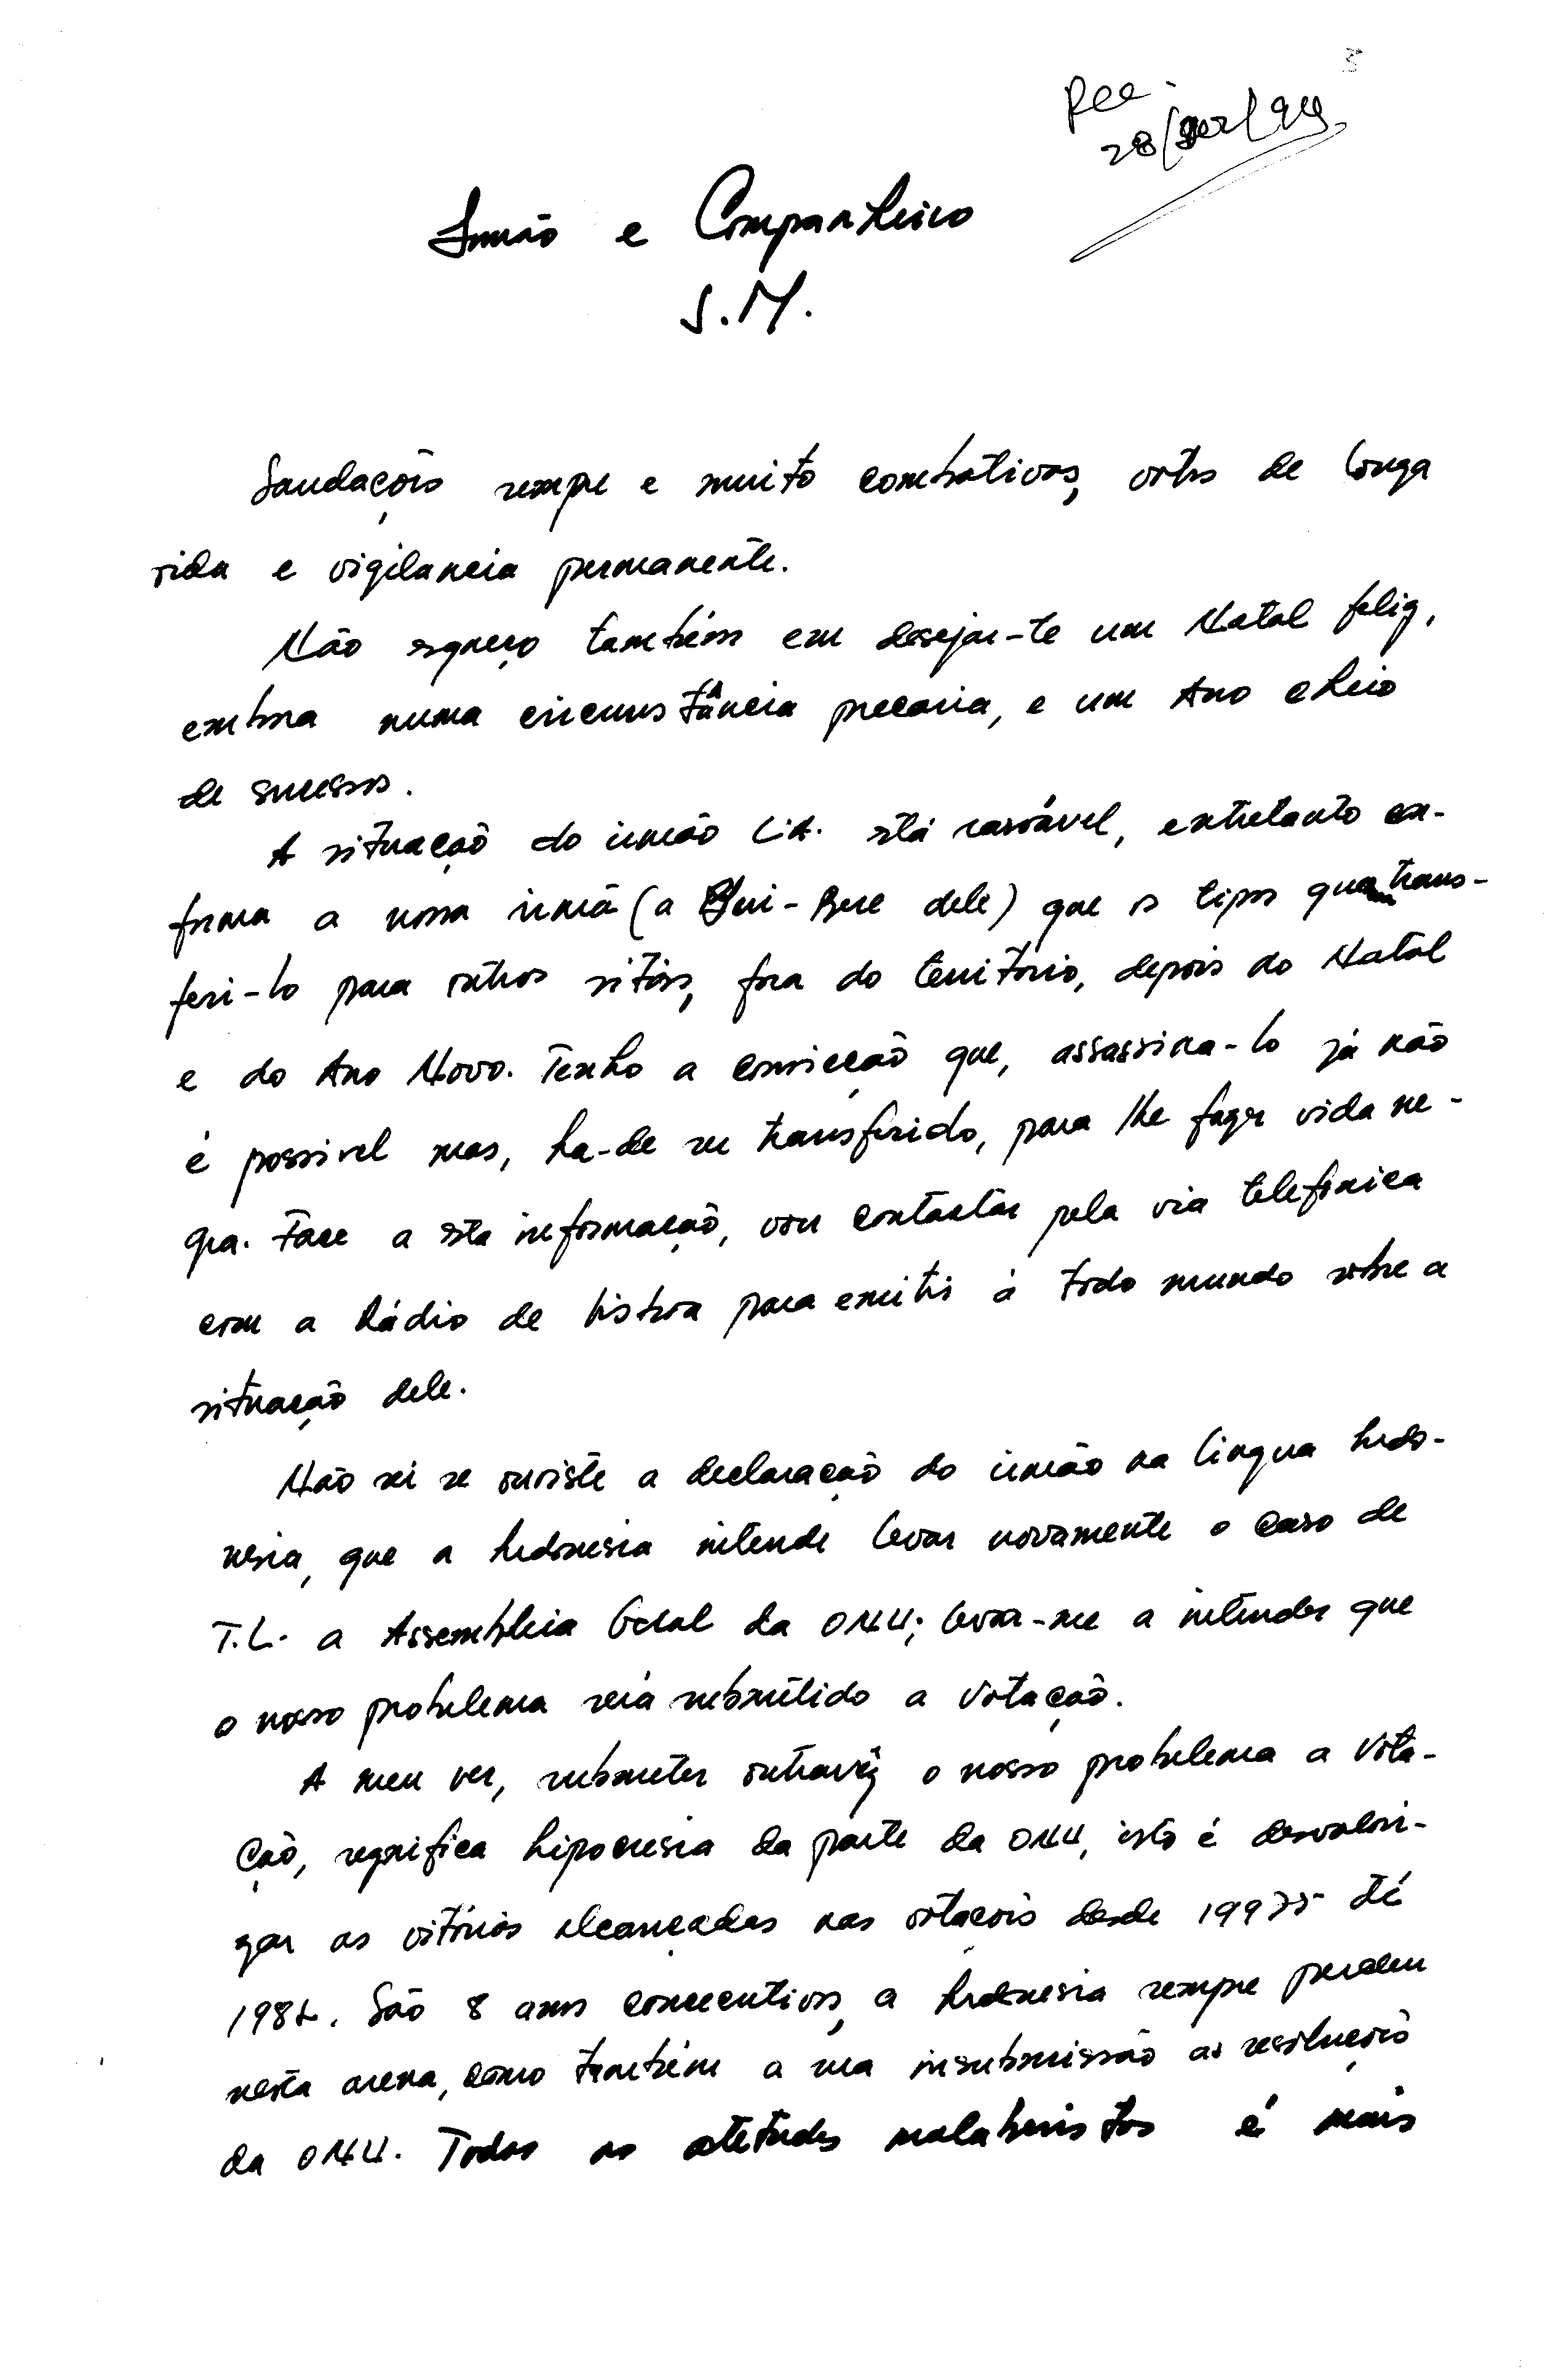 Rec.
28/Dez/94
Irmão e Companheiro
S.M.
Saudaçois sempre e muito combativas, votos de longa
vida e vigilancia permanente.
Não esqueço também em desejar-te um Natal feliz,
embora numa circunstância precaria, e um Ano cheio
de sucessos.
A situação do irmão L.A. está rasoável, entretanto en-
forma a nossa irmã (a Bui-Bere dele) que os tipos quer trans-
feri-lo para outros sitios, fora do território, depois do Natal
e do Ano Novo. Tenho a convicção que, assassina-lo já não
é possivel mas, ha-de ser transferido, para lhe fazer vida ne-
gra. Face a esta informação, vou contactar pela via telefonica
com a Rádio de Lisboa para emitir á todo mundo sobre a
situação dele.
Não sei se ouviste a declaração do irmão na lingua Indo-
nesia, que a Indonesia intende levar novamente o caso de
T.L. a Assembleia Geral da ONU; levar-me a intender que
o nosso probelema será submetido a votação.
A meu ver, submeter outravêz o nosso probelema a vota-
ção, segnifica hipocresia da parte da ONU, isto é desvalori-
zar as vitórias alcançadas nas votacois desde 19975 té
1982. São 8 anos concecutivos, a Indonesia sempre perdeu
nesta arena, como também a sua insubmissão as resoluçois
da ONU. Todas as atetudes malabaristas é mais